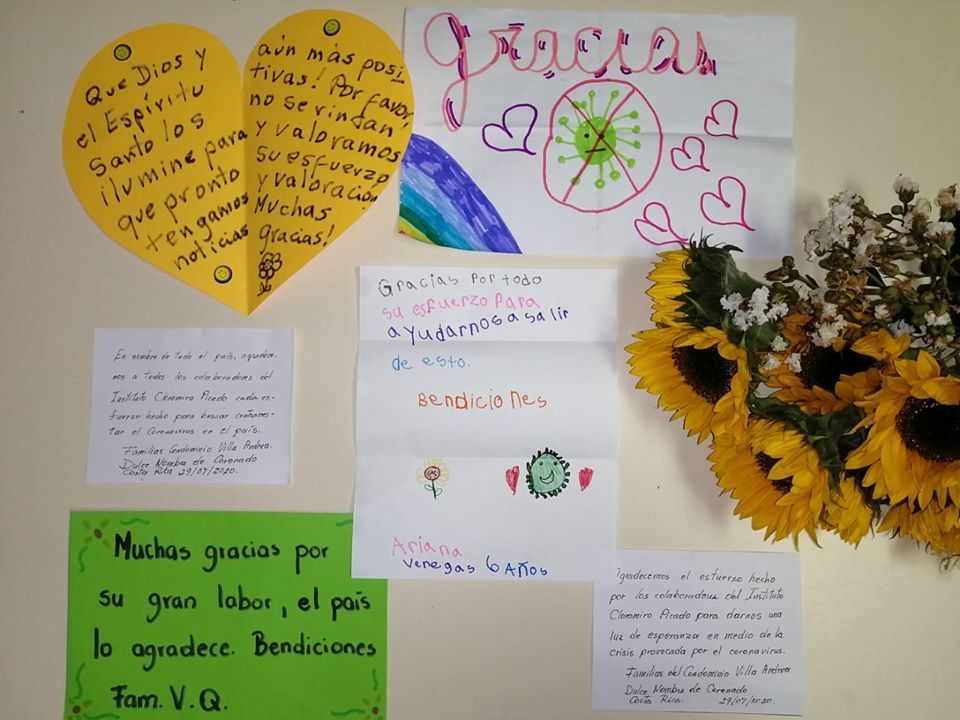 Que Dios y
el Espíritu
Santo los
ilumine para
que pronto
tengamos
noticias
aún más posi
tivas! Por favor,
no se rindan
y valoramos
su esfuerzo
y valoración
Muchas
gracias!
gracias!
Gracias por todo
su esfuerzo para
ayudarnos a salir
de esto.
Bendiciones
Ariana
Venegas 6 Años
En nombre de todo el país, agradece-
mos a todos los colaboradores del
Instituto Cloromiro Picado cada es-
fuerzo hecho para buscar
tar el Coronavirus en el país.
Familias Condominio Villa Andrea.
Dulce Nombre de Coronado
Costa Rica 29/07/2020.
Muchas gracias por
su gran labor, el país
lo agradece. Bendiciones
Fam. V. Q.
Agradecemos el esfuerzo hecho
por los colaboradores del Instituto
Cloromiro Picado para darnos una
luz de esperanza en medio de la
crisis provocada por el coronavirus.
Familias del Condominio Villa Andrea
Dulce Nombre de Coronado
Costa Rica 29/07/2020.